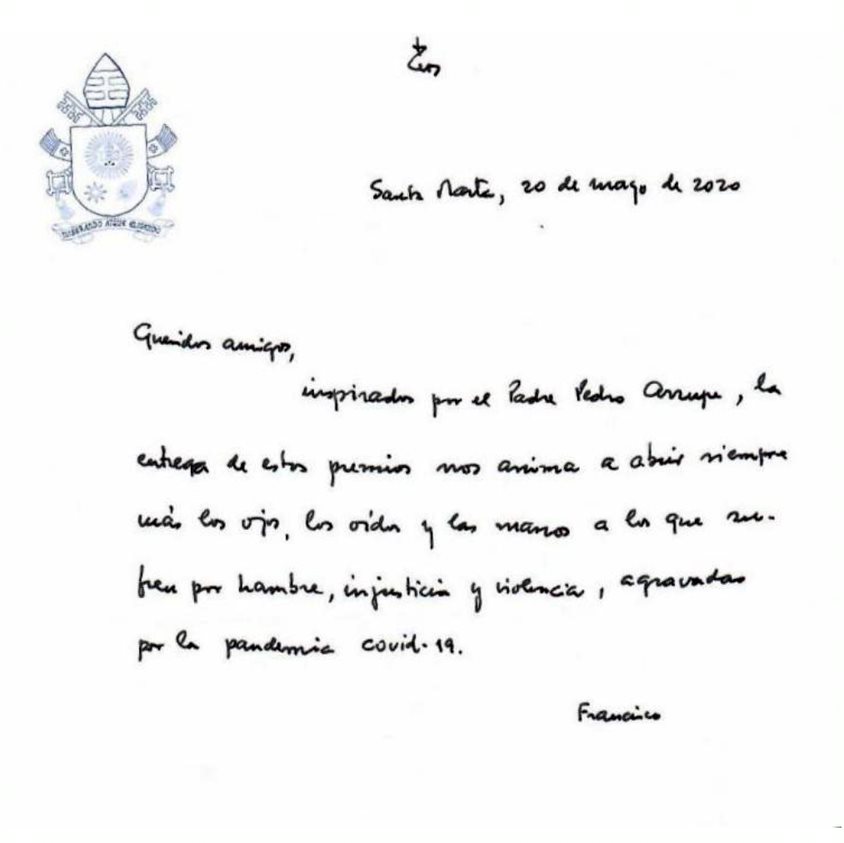 MISERANDO ATQUE ELIGENDO
Santa Marta, 20 de mayo de 2020
Queridos amigos,
inspirados por el Padre Pedro Arrupe, la
entrega de estos premios nos anima a abrir siempre
más los ojos, los oídos y las manos a los que su-
fren por hambre, injusticia y violencia, agravadas
por la pandemia covid-19.
Francisco